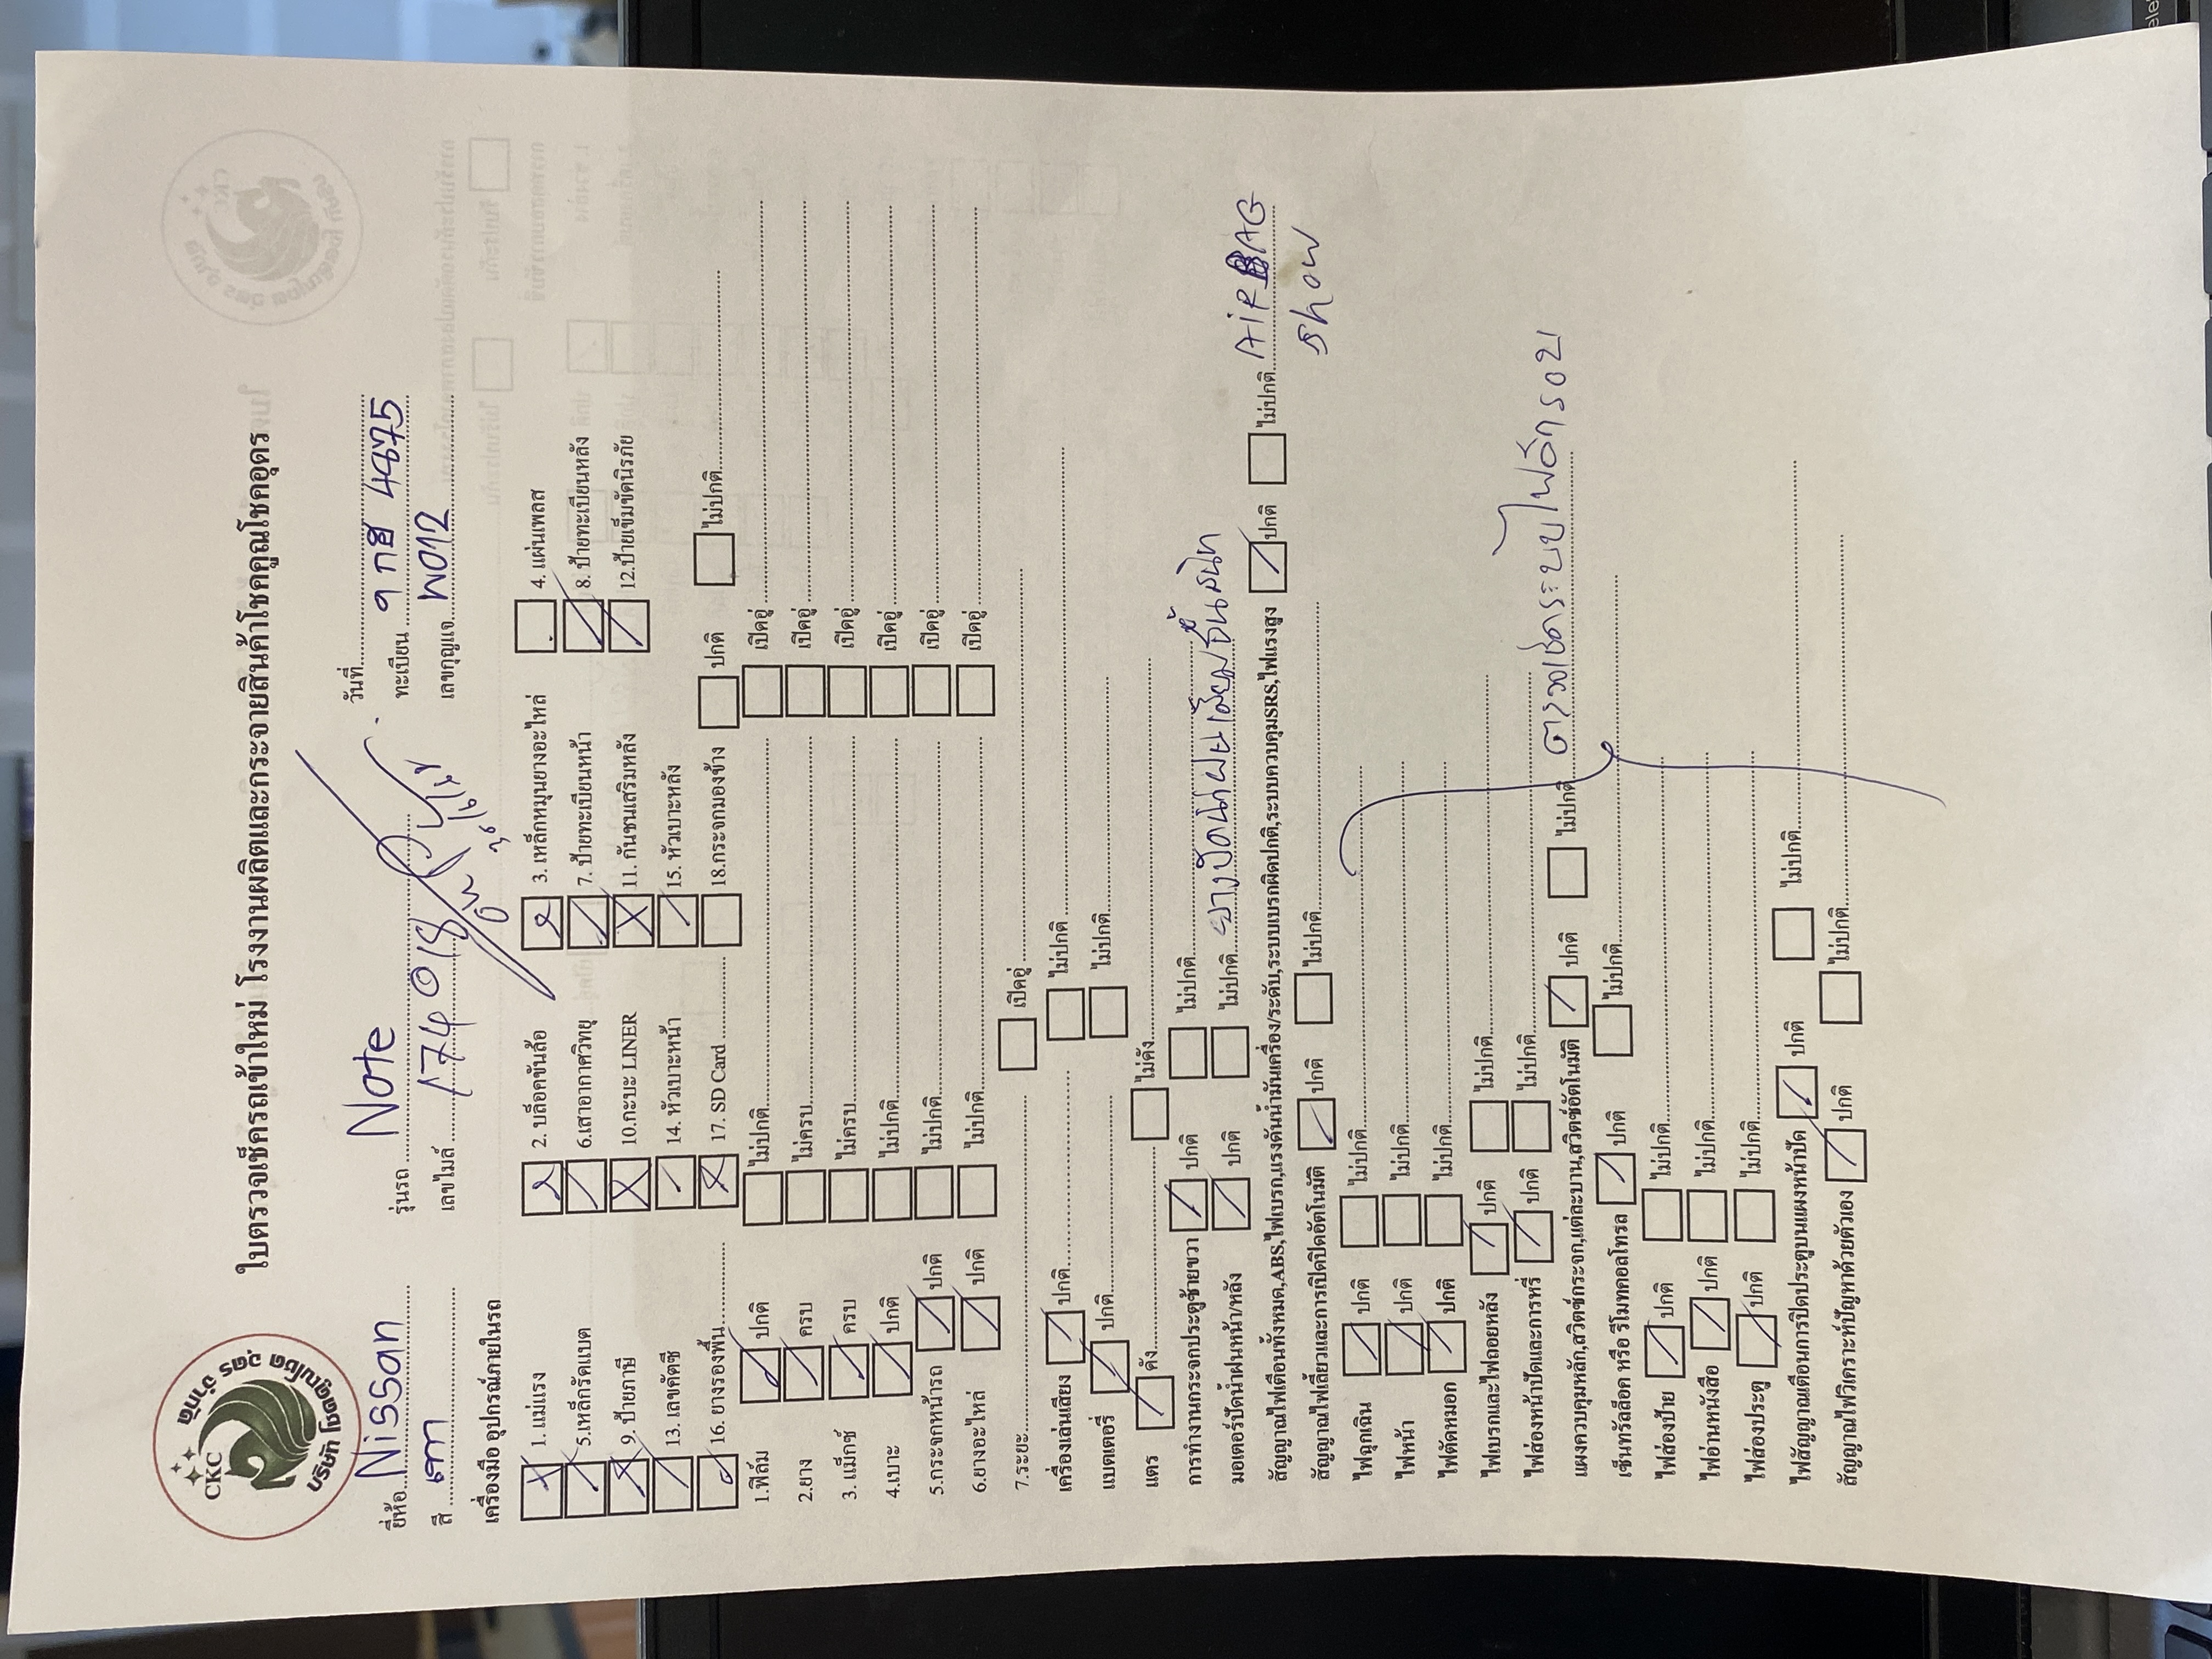 ใบตรวจเช็ครถเข้าใหม่ โรงงานผลิตและกระจายสินค้าโชคคูณโชคอุดร
CKC
บริษัท โชคคูณโชค อุดร จำกัด
ยี่ห้อ Nissan รุ่นรถ Note วันที่
สี เทา เลขไมล์ 174018 ทะเบียน 9 กฮ 4875
เลขกุญแจ W012
เครื่องมือ อุปกรณ์ภายในรถ
1. แม่แรง 2. บล็อคขันล้อ 3. เหล็กหมุนยางอะไหล่ 4. แผ่นเพลส
5.เหล็กรัดแบต 6.เสาอากาศวิทยุ 7. ป้ายทะเบียนหน้า 8. ป้ายทะเบียนหลัง
9. ป้ายภาษี 10.กะบะ LINER 11. กันชนเสริมหลัง 12.ป้ายเข็มขัดนิรภัย
13. เลขคัตซี 14. หัวเบาะหน้า 15. หัวเบาะหลัง
16. ยางรองพื้น 17. SD Card 18.กระจกมองข้าง ปกติ ไม่ปกติ
1.ฟิล์ม ปกติ ไม่ปกติ เปิดอู่
2.ยาง ครบ ไม่ครบ เปิดอู่
3. แม็กซ์ ครบ ไม่ครบ เปิดอู่
4.เบาะ ปกติ ไม่ปกติ เปิดอู่
5.กระจกหน้ารถ ปกติ ไม่ปกติ เปิดอู่
6.ยางอะไหล่ ปกติ ไม่ปกติ เปิดอู่
7.ระยะ เปิดอู่
เครื่องเล่นเสียง ปกติ ไม่ปกติ
แบตเตอรี่ ปกติ ไม่ปกติ
แตร ดัง ไม่ดัง
การทำงานกระจกประตูซ้ายขวา ปกติ ไม่ปกติ
มอเตอร์ปัดน้ำฝนหน้า/หลัง ปกติ ไม่ปกติ ยางปัดน้ำฝน
สัญญาณไฟเตือนทั้งหมด,ABS,ไฟเบรก,แรงดันน้ำมันเครื่อง/ระดับ,ระบบเบรกผิดปกติ,ระบบควบคุมSRS,ไฟแรงสูง ปกติ ไม่ปกติ AIRBAG
show
สัญญาณไฟเลี้ยวและการเปิดปิดอัตโนมัติ ปกติ ไม่ปกติ
ไฟฉุกเฉิน ปกติ ไม่ปกติ
ไฟหน้า ปกติ ไม่ปกติ
ไฟตัดหมอก ปกติ ไม่ปกติ
ไฟเบรกและไฟถอยหลัง ปกติ ไม่ปกติ
ไฟส่องหน้าปัดและการหรี่ ปกติ ไม่ปกติ
แผงควบคุมหลัก,สวิตซ์กระจก,แต่ละบาน,สวิตซ์อัตโนมัติ ปกติ ไม่ปกติ ตรวจเช็คระบบไฟอีกรอบ
เซ็นทรัลล็อค หรือ รีโมทคอลโทรล ปกติ ไม่ปกติ
ไฟส่องป้าย ปกติ ไม่ปกติ
ไฟอ่านหนังสือ ปกติ ไม่ปกติ
ไฟส่องประตู ปกติ ไม่ปกติ
ไฟสัญญาณเตือนการปิดประตูบนแผงหน้าปัด ปกติ ไม่ปกติ
สัญญาณไฟวิเคราะห์ปัญหาด้วยตัวเอง ปกติ ไม่ปกติ